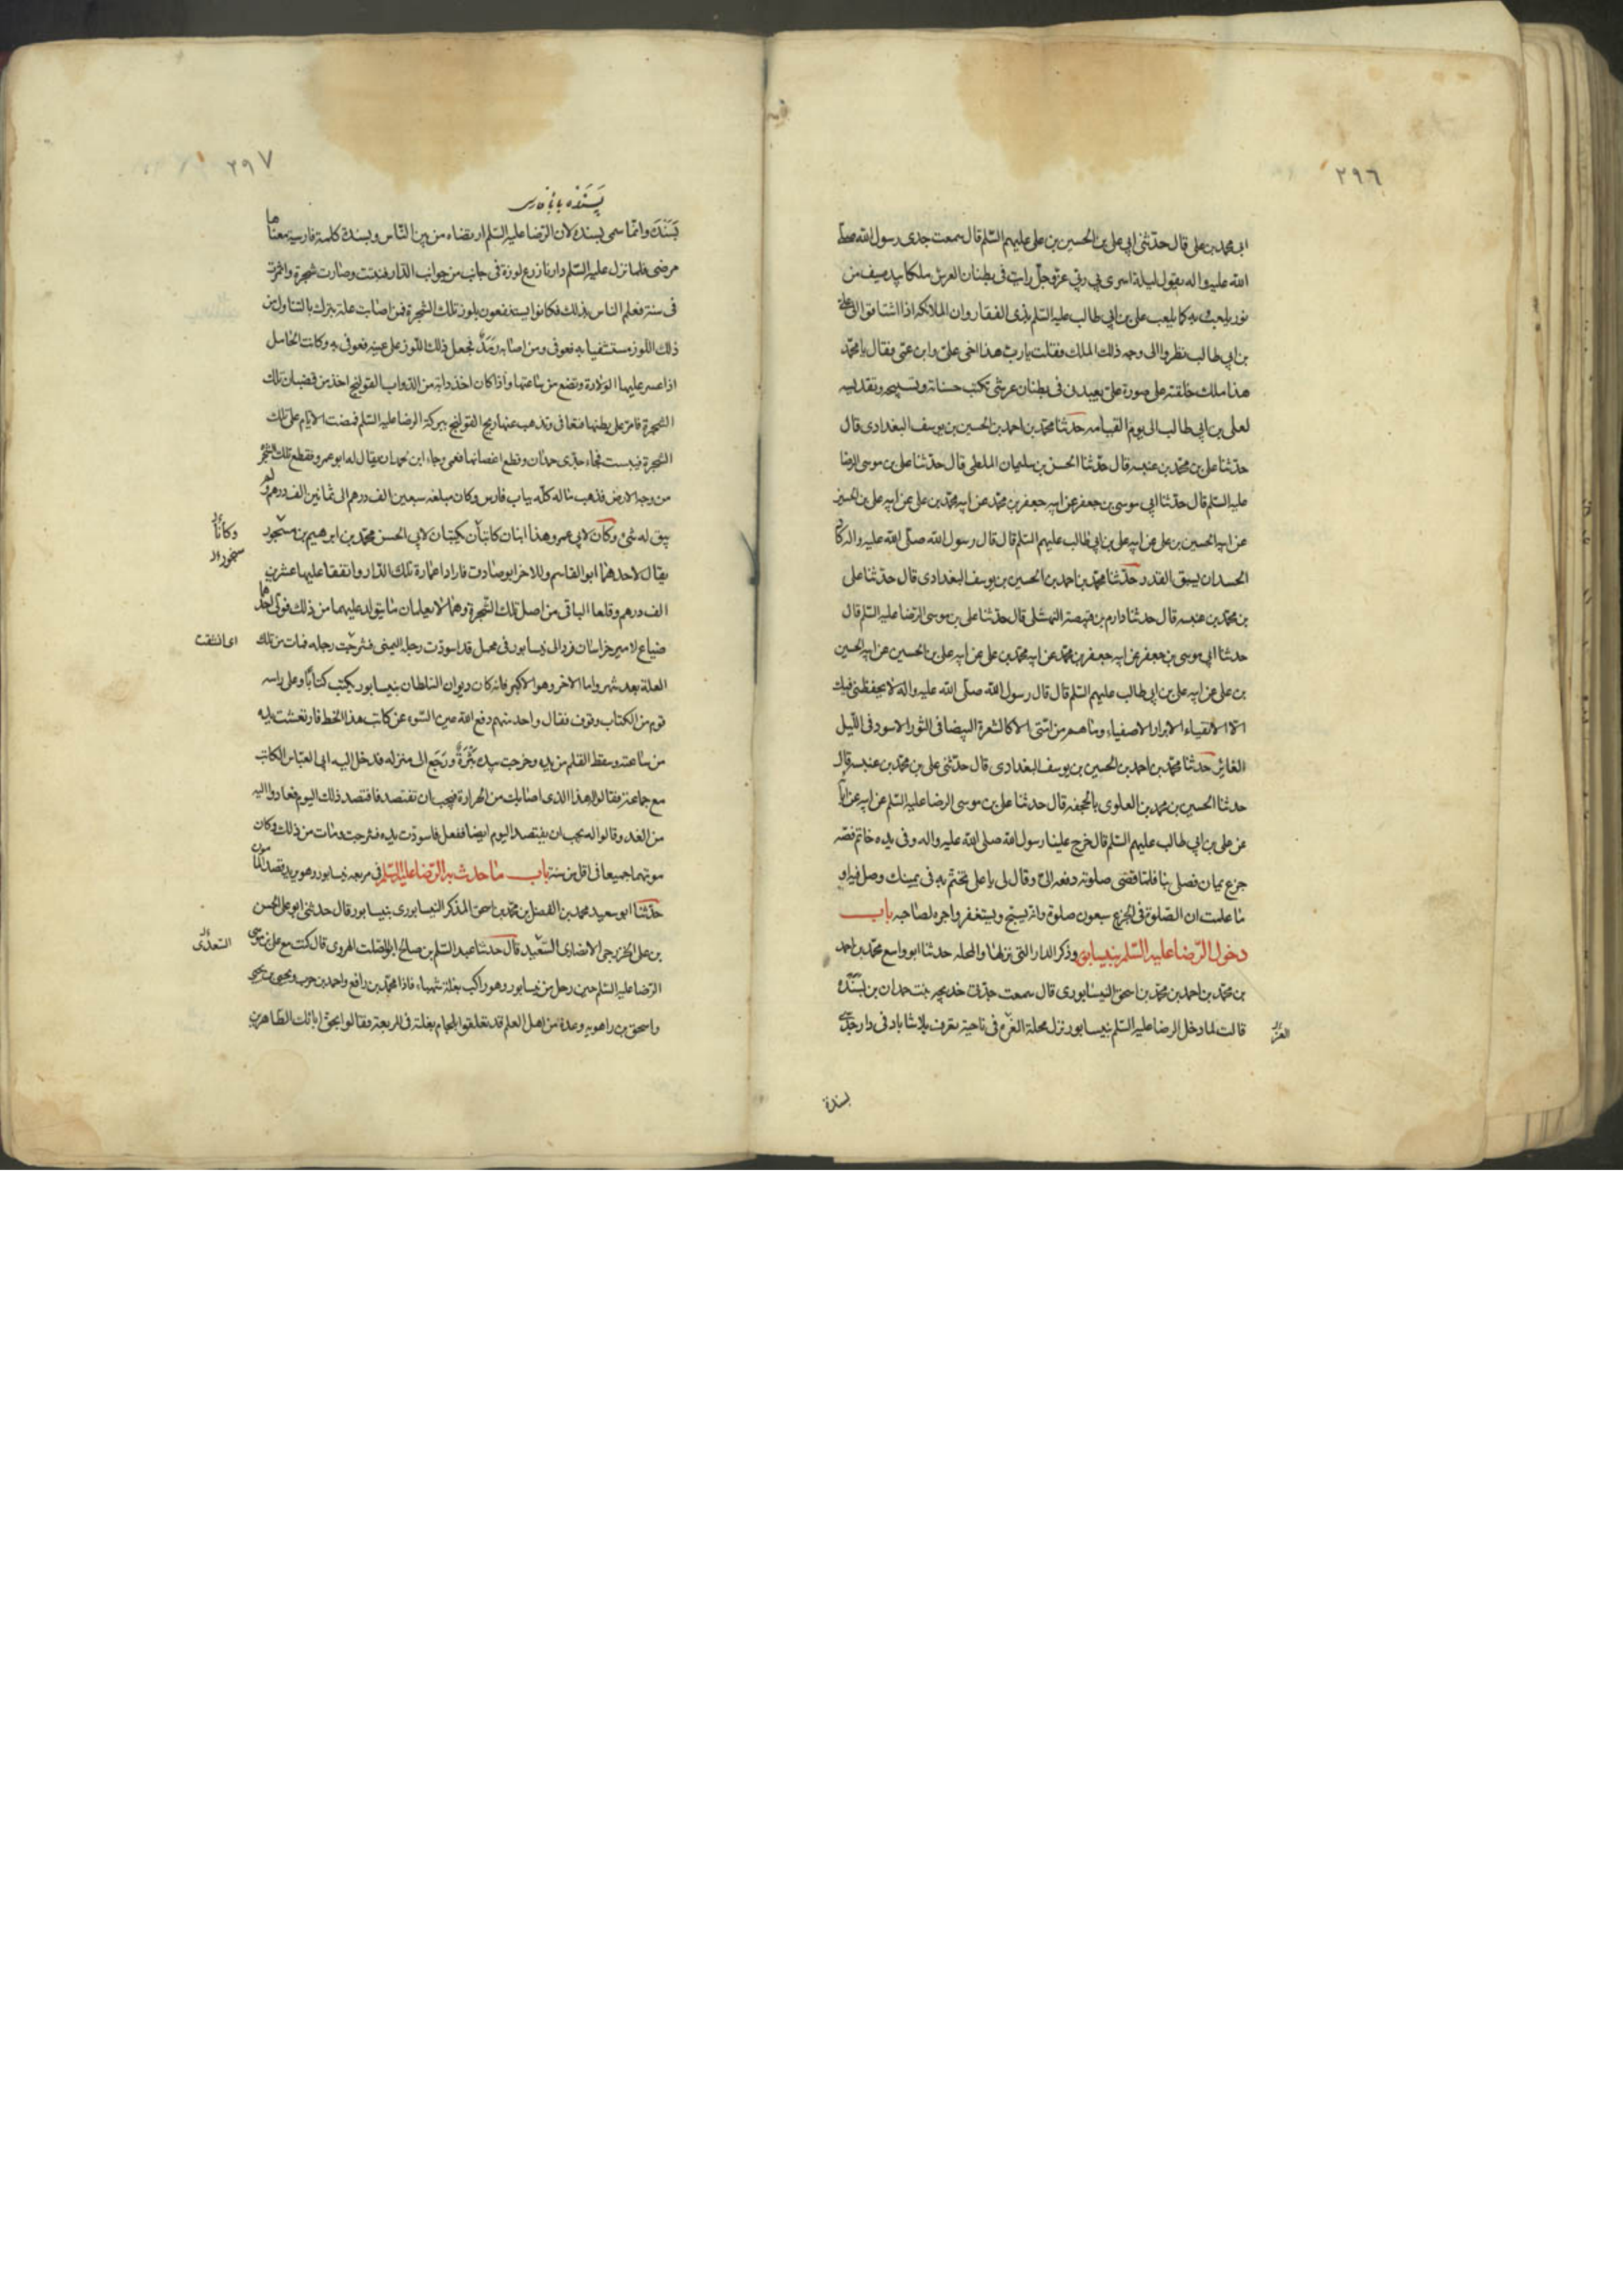 ٢٩٦
ابى محمد بن على قال حدّثنى ابى على بن الحسين بن على عليهم السّلم قال سمعت جدى رسول الله صلّى
الله عليه واله يقول ليلة اسرى بي ربّي عزّ وجلّ رايت فى بطنان العرش ملكا بيده سيف من
نور يلعب به كما يلعب على بن ابي طالب عليه السّلم بذى الفقار وان الملائكه اذا اشتاقوا الى على
بن ابي طالب نظروا الى وجه ذلك الملك فقلت يا ربّ هذا اخى علىّ وابن عمّى فقال يا محمّد
هذا ملك خلقته على صورة علىّ يعبدنى فى بطنان عرشى تكتب حسناته وتسبيحه وتقديسه
لعلى بن ابي طالب الى يوم القيامه حدّثنا محمّد بن احمد بن الحسين بن يوسف البغدادى قال
حدّثنا على بن محمّد بن عنبسه قال حدّثنا الحسن بن سليمان الملطى قال حدّثنا على بن موسى الرضا
عليه السّلم قال حدّثنا ابي موسى بن جعفر عن ابيه جعفر بن محمّد عن ابيه محمّد بن على عن ابيه على بن الحسين
عن ابيه الحسين بن على عن ابيه على بن ابي طالب عليهم السّلم قال قال رسول الله صلّى الله عليه واله كاد
الحسد ان يسبق القدر حدّثنا محمّد بن احمد بن الحسين بن يوسف البغدادى قال حدّثنا على
بن محمّد بن عنبسه قال حدثنا دارم بن قبيصة النهشلى قال حدّثنا على بن موسى الرّضا عليه السّلم قال
حدثنا ابي موسى بن جعفر عن ابيه جعفر بن محمّد عن ابيه محمّد بن على عن ابيه على بن الحسين عن ابيه الحسين
بن على عن ابيه على بن ابي طالب عليهم السّلم قال قال رسول الله صلّى الله عليه واله لا يحفظنى فيك
الّا الاتقياء الابرار الاصفياء وما هم من امّتى الا كالشعرة البيضا فى الثور الاسود فى اللّيل
الغابر حدثنا محمّد بن احمد بن الحسين بن يوسف البغدادى قال حدّثنى على بن محمّد بن عنبسه قال
حدثنا الحسين بن محمد بن العلوى بالجحفه قال حدثنا على بن موسى الرضا عليه السّلم عن ابيه عن ابائه
عن على بن ابي طالب عليهم السّلم قال خرج علينا رسول الله صلى الله عليه واله وفى يده خاتم فصّه
جزع يمان فصلى بنا فلمّا قضى صلوته دفعه الىّ وقال لى يا على تختّم به فى يمينك وصل فيه او
ما علمت ان الصّلوة فى الجزع سبعون صلوة وانه يسبّح ويستغفر واجره لصاحبه باب
دخول الرّضا عليه السّلم بنيسابور وذكر الدار التى نزلها والمحله حدثنا ابو واسع محمّد بن احمد
بن محمّد بن احمد بن محمّد بن اسحق النيسابورى قال سمعت جدّتى خديجه بنت حمدان بن بسنده
قالت لما دخل الرضا عليه السّلم بنيسابور نزل محلة الغزّ فى ناحية تعرف بلاشاباد فى دار جدّى
بسنده
٢٩٧
بَسَنده وانّما سمى بسنده لان الرّضا عليه السّلم ارتضاه من بين النّاس وبسنده كلمة فارسية معناها
مرضى فلما نزل عليه السّلم دارنا زرع لوزة فى جانب من جوانب الدّار فنبتت وصارت شجرة واثمرت
فى سنة فعلم الناس بذلك فكانوا يستشفعون بلوز تلك الشجرة فمن اصابت علة تبرك بالتناول من
ذلك اللوز مستشفيا به فعوفى ومن اصابه رمد نجعل ذلك اللّوز على عينه فعوفى به وكانت الحامل
اذا عسر عليها الولادة وتضع من ساعتها واذا كان اخذ دابّة من الدّواب القولنج اخذ من قضبان تلك
الشجرة فامرّ على بطنها فتعافى وتذهب عنها ريح القولنج ببركة الرضا عليه السّلم فمضت الايّام على تلك
الشجرة فيبست فجاء جدّى حمدان وقطع اغصانها فعمى وجاء ابن لحمدان يقال له ابو عمرو فقطع تلك الشجرة
من وجه الارض فذهب ماله كلّه بباب فارس وكان مبلغه سبعين الف درهم الى ثمانين الف درهم ولم
يبق له شئ وكان لابى عمرو هذا ابنان كاتبان يكتبان لابى الحسن محمّد بن ابرهيم بن
وكانا
يقال لاحدهما ابو القاسم وللاخر ابو صادق فارادا عمارة تلك الدّار وانفقا عليها عشرين
الف درهم وقلعا الباقى من اصل تلك الشّجرة وهما لا يعلمان ما يتولد عليهما من ذلك فولى احدهما
ضياع لامير خراسان فردّ الى نيسابور فى محمل قد اسودّت رجله اليمنى فشرحت رجله فمات من تلك
اى انشقت
العلّة بعد شهر واما الاخر وهو الاكبر فانه كان ديوان السّلطان بنيسابور يكتب كتابًا وعلى راسه
قوم من الكتاب وقوف فقال واحد منهم دفع الله عين السّوء عن كاتب هذا الخط فارتعشت يده
من ساعته وسقط القلم من يده وخرجت بيده بثرة ورجع الى منزله فدخل اليه ابو العبّاس الكاتب
مع جماعة فقالوا له هذا الذى اصابك من الحرارة فيجب ان تفتصد فافتصد ذلك اليوم فعادوا اليه
من الغد وقالوا له يجب ان يفتصد اليوم ايضا ففعل فاسودّت يده فشرحت ومات من ذلك وكان
موتهما جميعا فى اقل من سنة باب ما حدث به الرّضا عليه السّلم فى مربعه نيسابور وهو يريد قصد المامون
حدّثنا ابو سعيد محمد بن الفضل بن محمّد بن اسحق المذكر النيسابورى بنيسابور قال حدثنى ابو على الحسن
بن على الخزرجى الانصارى السّعدى قال حدثنا عبد السّلم بن صالح ابو الصّلت الهروى قال كنت مع على بن موسى
الرّضا عليه السّلم حين رحل من نيسابور وهو راكب بغلة شهباء فاذا محمّد بن رافع واحمد بن حرب ويحيى بن يحيى
واسحق بن راهويه وعدة من اهل العلم قد تعلقوا بلجام بغلته فى المربعة فقالوا بحق ابائك الطاهرين